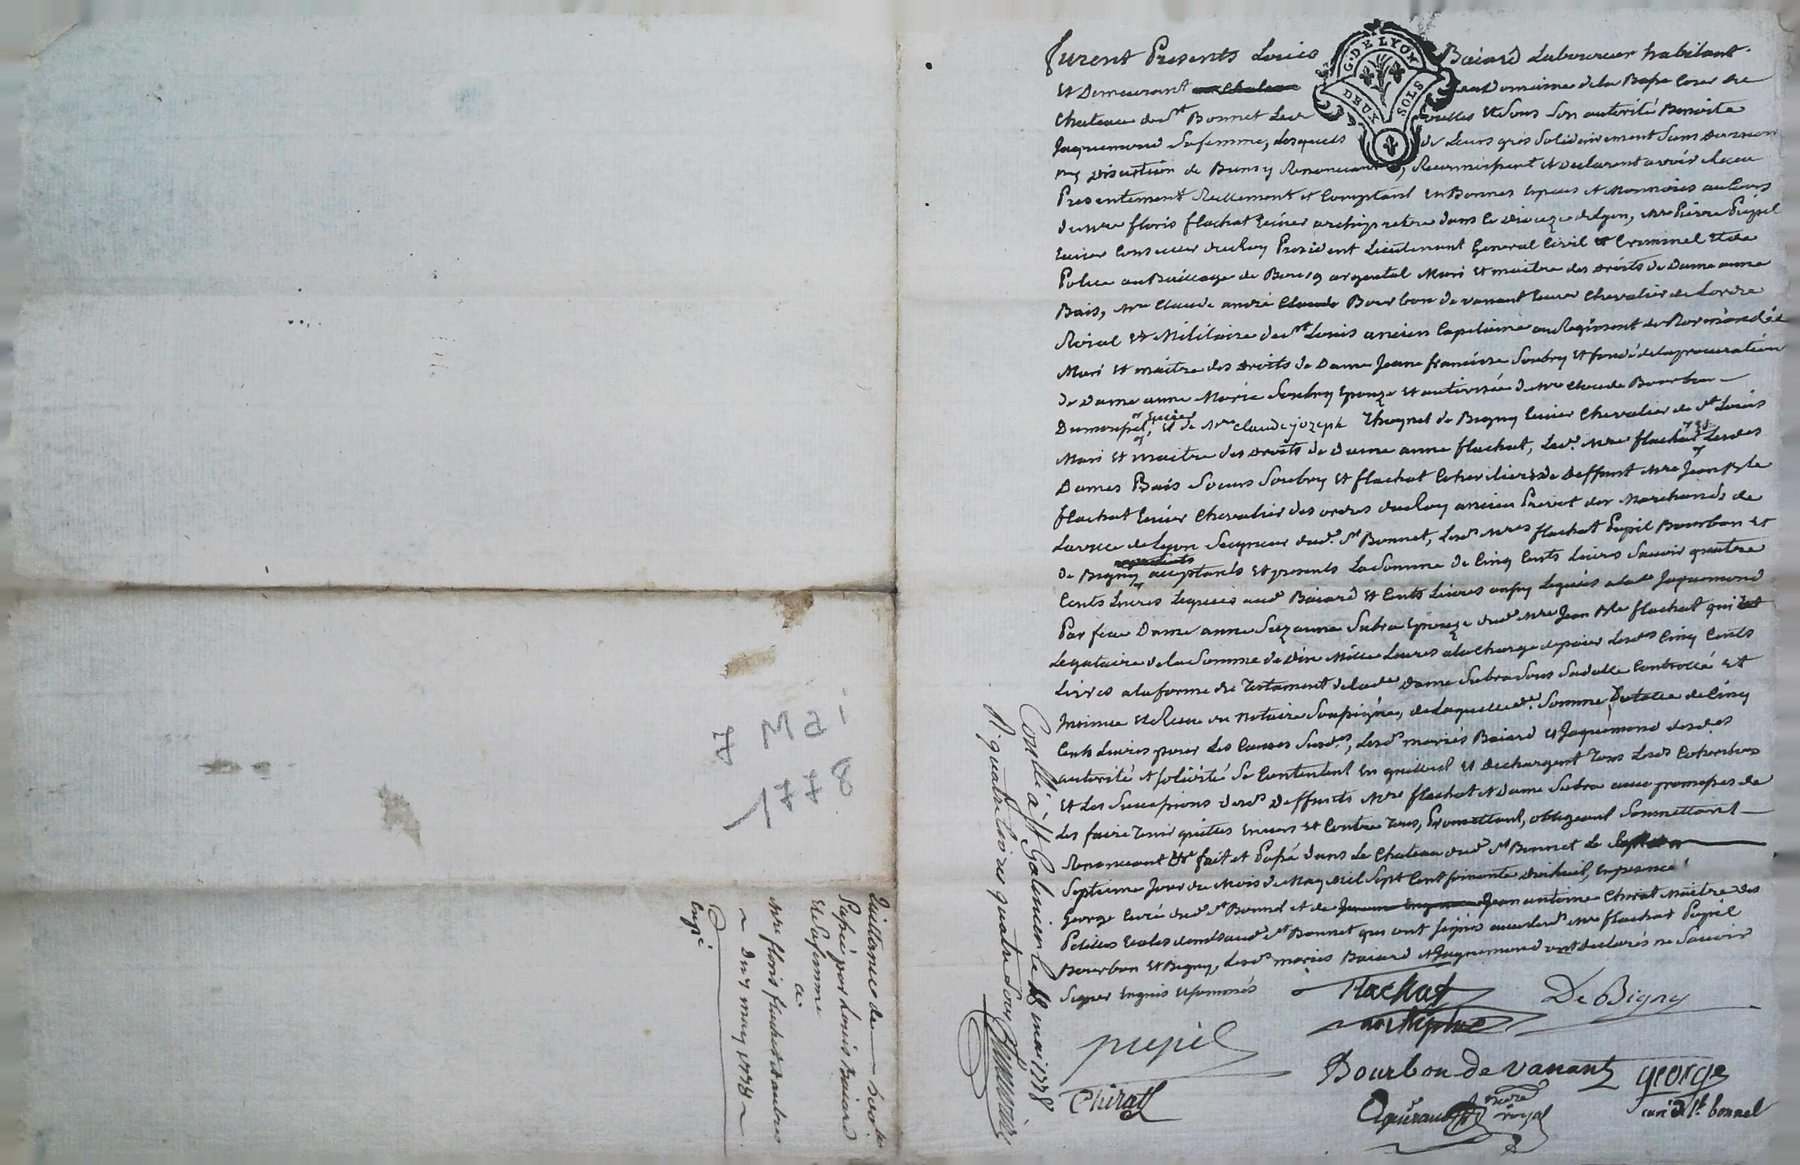 furent Presents Louis Baiard Laboureur habitant
et Demeurant Domaine de la Basse Cour du
Chateau de St Bonnet et sous son autorité Benoite
Jaquemond sa femme, Lesquels de Leurs grés solidairement sans division
ny Discution de Biens y Renonçants, Reconnoissent et declarent avoir Receu
Presentement Reellement et Comptant en Bonnes Especes et Monnoies au Cours
de Mre floris flachat Ecuier archipretre dans le Dioceze de Lyon, Mre Pierre Pupil
Ecuier Conseiller du Roy President Lieutenant General Civil et Criminel et de
Police au Baillage de Bourg argental Mari et maitre des droits de Dame anne
Bais, Mre Claude andré Claude Bourbon de vanant Ecuier Chevalier de Lordre
Roial et Militaire de St Louis ancien Capitaine au Regiment de Normandie
Mari et maitre des Droits de Dame Jeanne francoise Soubry et fondé de la procuration
de Dame anne Marie Soubry Epouze et autorisée de Mre Claude Bourbon
Ecuier
et de Mre Claude jozeph Thoynet de Bigny Ecuier Chevalier de St Louis
Mari et maitre des Droits de dame anne flachat, Led. Mre flachat Lesdes
Dames Bais Soeurs Soubry et flachat Coheritiers de Deffunt Mre Jean Bte
flachat Ecuier Chevalier des ordres du Roy ancien Prevot des Marchands de
La ville de Lyon Seigneur dud. St Bonnet, Lesd. Mres flachat Pupil Bourbon et
de Bigny acceptants et presents La Somme de Cinq Cents Livres Savoir quatre
Cents Livres Leguées aud. Baiard et Cents Livres aussy Leguées a lade Jaquemond
Par feue Dame anne Suzanne Subra Epouze dud. Mre Jean Bte flachat qui
Legataire de la Somme de Dix Mille Livres a la Charge de paier Lesdes Cinq Cents
Livres a la forme du Testament de lade Dame Subra sous sa datte Controllé et
Insinué et Receu du Notaire Soussigné, de Laquelle de. Somme Totale de Cinq
Cents Livres pour Les Causes Susdes, Lesd. mariés Baiard et Jaquemond desdes
autorité et solidité Se Contentent En quittent et Dechargent Tous Lesd. Coheritiers
et Les Successions desd. Deffunts Mre flachat et Dame Subra avec promesses de
Les faire Tenir quittes Envers et Contre Tous, Promettant, obligeant Soumettant
Renonçant &c fait et Passé dans Le Chateau dud. St Bonnet Le
Septieme Jour du Mois de May Mil Sept Cent soixante dixhuit, En presence
George Curé dud. St Bonnet et de Jean antoine Chirat Maitre des
Petites Ecoles demt aud. St Bonnet qui ont signé avec lesd. Mre flachat Pupil
Bourbon et Bigny, Lesd. mariés Baiard et Jaquemond ont Declarés ne Savoir
Signer Enquis et sommés
flachat
archiprêtre
De Bigny
pupil
Bourbon de vanant
george
curé de St bonnet
Chirat
nore
royal
G. DE LYON
DEUX SOLS
Contllé a St Galmier le 18 mai 1778
R quatorze
Quittance de
Passé par Louis Baiard
et Sa femme
a
Mre floris flachat et autres
Du 7 may 1778
Expé
7
Mai
1778